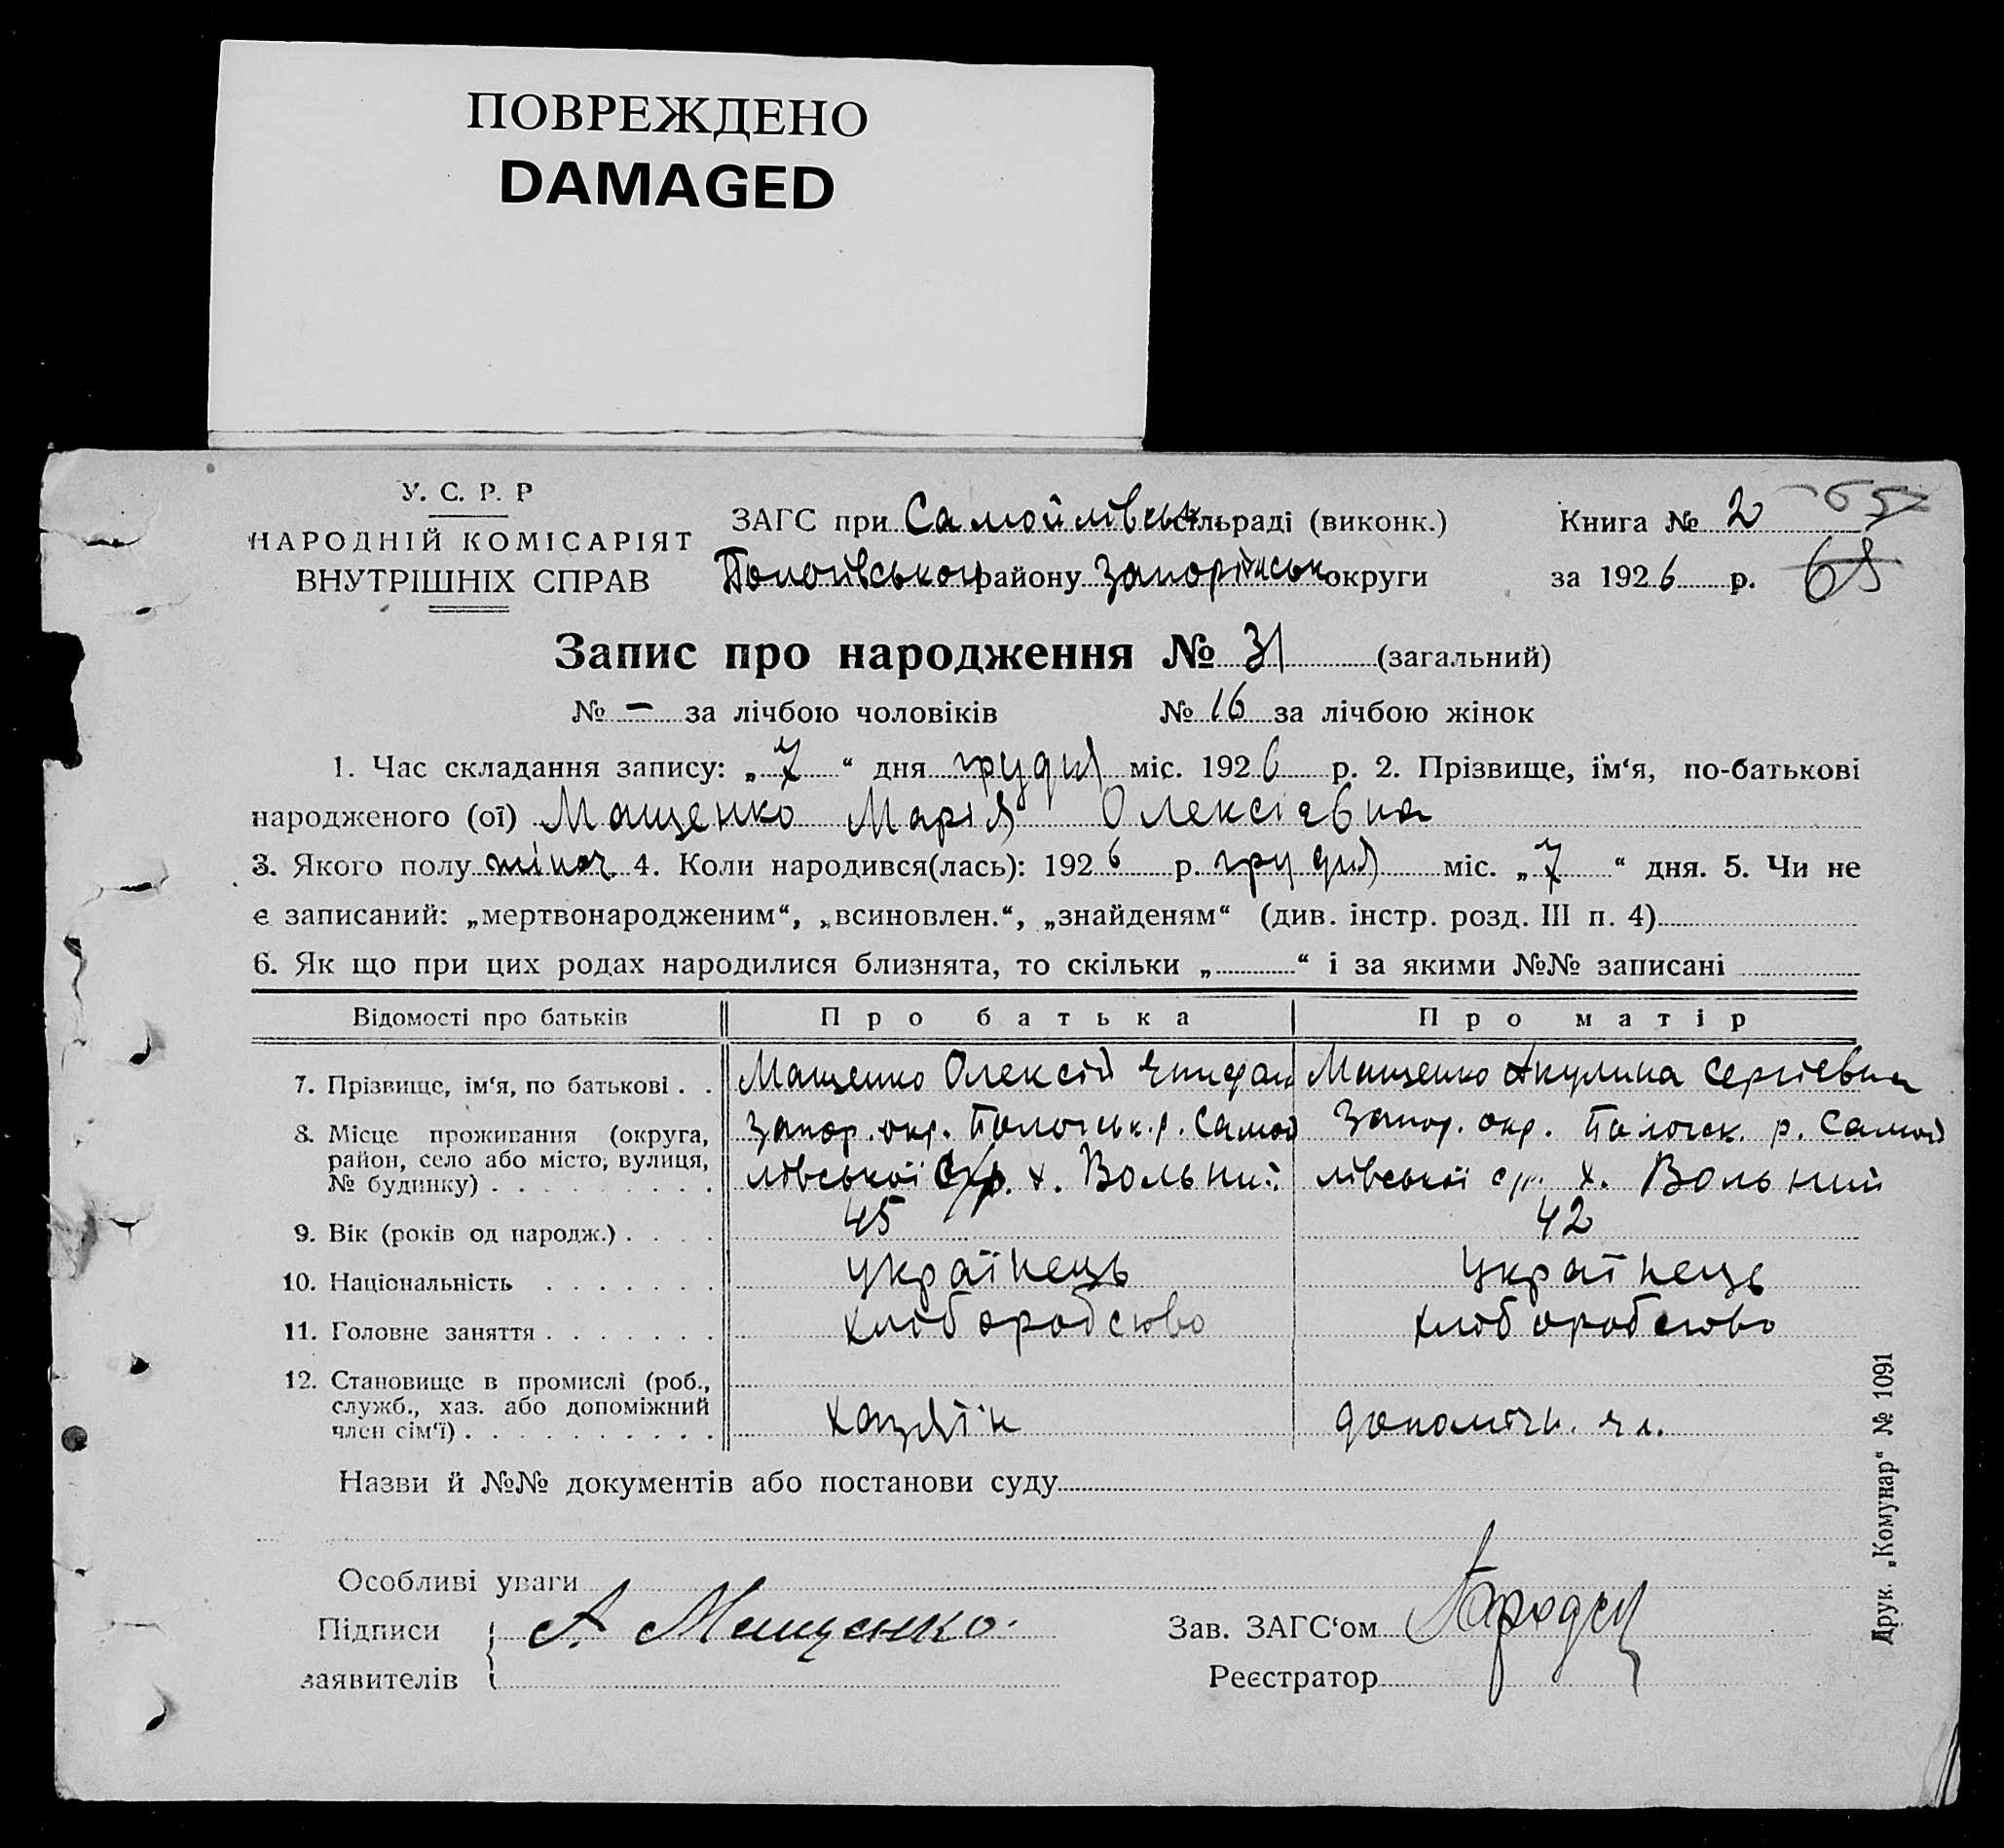 ПОВРЕЖДЕНО
DAMAGED
У. С. Р. Р
НАРОДНІЙ КОМІСАРІЯТ
ВНУТРІШНІХ СПРАВ
ЗАГС при Самойлівськ сільраді (виконк.)
Пологівського району Запоріжськ округи
Книга № 2
за 1926 р.
65
Запис про народження № 31 (загальний)
№ – за лічбою чоловіків № 16 за лічбою жінок
1. Час складання запису: „7“ дня грудня міс. 1926 р. 2. Прізвище, ім‘я, по-батькові
народженого (ої) Мащенко Марія Олексієвна
3. Якого полу жіноч. 4. Коли народився(лась): 1926 р. грудня міс. „7“ дня. 5. Чи не
є записаний: „мертвонародженим“, „всиновлен.“, „знайденям“ (див. інстр. розд. III п. 4)
6. Як що при цих родах народилися близнята, то скільки „ “ і за якими №№ записані
Відомості про батьків Про батька Про матір
7. Прізвище, ім‘я, по батькові . . Мащенко Олексій Епифан Мащенко Акулина Сергієвна
8. Місце проживання (округа, район, село або місто, вулиця, № будинку) . . . . . . . . .
Запор. окр. Пологськ. р. Самой
лівської с/р. х. Вольний
Запор. окр. Пологск. р. Самой
лівської с/р. х. Вольний
9. Вік (років од народж.) . . . . 45 42
10. Національність . . . . . . . українець українець
11. Головне заняття . . . . . . . хліборобство хліборобство
12. Становище в промислі (роб.,
служб., хаз. або допоміжний
член сім‘ї) . . . . . . . . . . хазяїін допоміжн. чл.
Назви й №№ документів або постанови суду
Особливі уваги
Підписи
заявителів
А Мащенко.
Зав. ЗАГС‘ом
Реєстратор
Друк. „Комунар“ № 1091